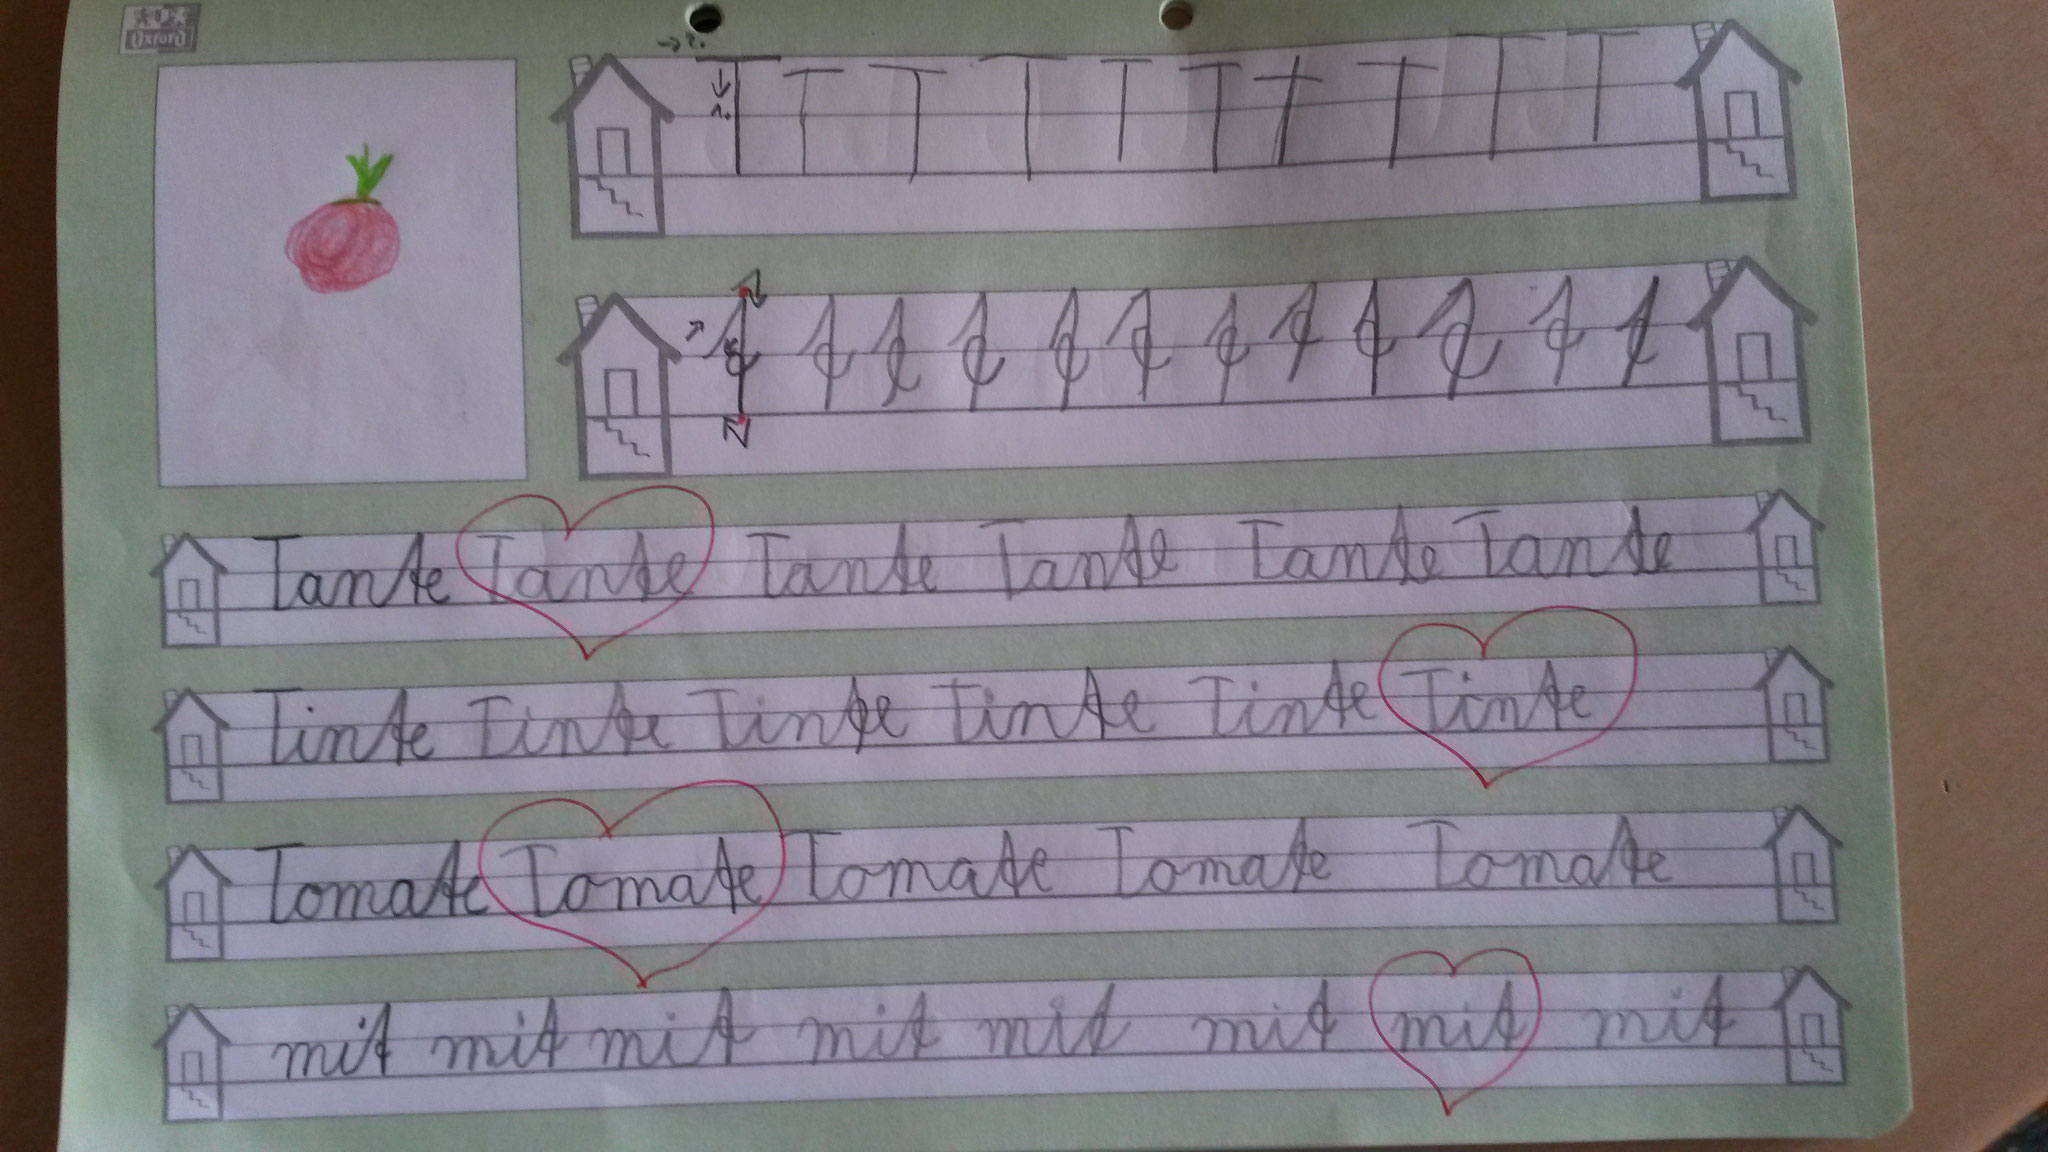 Oxford
→ 2.
T T T T T T T T T T
↓
1.
t t t t t t t t t t t t
Tante Tante Tante Tante Tante Tante
Tinte Tinte Tinte Tinte Tinte Tinte
Tomate Tomate Tomate Tomate Tomate
mit mit mit mit mit mit mit mit